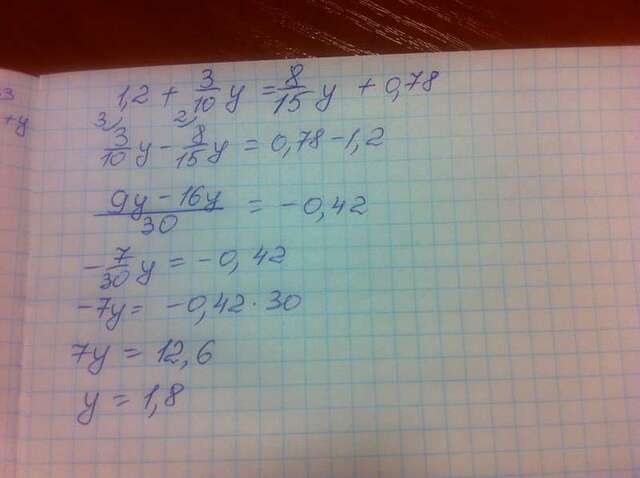 1,2 + 3/10 y = 8/15 y + 0,78
3) 2)
3/10 y - 8/15 y = 0,78 - 1,2
9y - 16y / 30 = - 0,42
- 7/30 y = - 0,42
-7y = -0,42 · 30
7y = 12,6
y = 1,8
+y